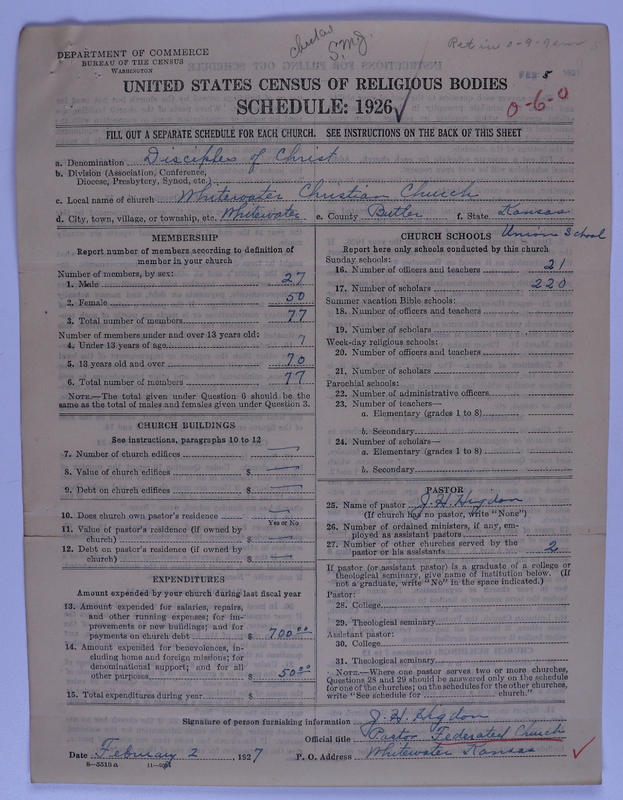 DEPARTMENT OF COMMERCE
BUREAU OF THE CENSUS
WASHINGTON
S.M.J.
FEB 5 1927
UNITED STATES CENSUS OF RELIGIOUS BODIES
SCHEDULE: 1926
0-6-0
FILL OUT A SEPARATE SCHEDULE FOR EACH CHURCH. SEE INSTRUCTIONS ON THE BACK OF THIS SHEET
a. Denomination Disciples of Christ
b. Division (Association, Conference,
Diocese, Presbytery, Synod, etc.)
c. Local name of church Whitewater Christian Church
d. City, town, village, or township, etc. Whitewater e. County Butler f. State Kansas
MEMBERSHIP
Report number of members according to definition of
member in your church
Number of members, by sex:
1. Male 27
2. Female 50
3. Total number of members 77
Number of members under and over 13 years old:
4. Under 13 years of age 7
5. 13 years old and over 70
6. Total number of members 77
NOTE.—The total given under Question 6 should be
same as the total of males and females given under Question 3.
CHURCH BUILDINGS
See instructions, paragraphs 10 to 12
7. Number of church edifices
8. Value of church edifices $
9. Debt on church edifices $
10. Does church own pastor's residence
Yes or No
11. Value of pastor's residence (if owned by
church) $
12. Debt on pastor's residence (if owned by
church) $
EXPENDITURES
Amount expended by your church during last fiscal year
13. Amount expended for salaries, repairs,
and other running expenses; for im-
provements or new buildings; and for
payments on church debt $ 700.00
14. Amount expended for benevolences, in-
cluding home and foreign missions; for
denominational support; and for all
other purposes $ 50.00
15. Total expenditures during year $
CHURCH SCHOOLS Union School
Report here only schools conducted by this church
Sunday schools:
16. Number of officers and teachers 21
17. Number of scholars 220
Summer vacation Bible schools:
18. Number of officers and teachers
19. Number of scholars
Week-day religious schools:
20. Number of officers and teachers
21. Number of scholars
Parochial schools:
22. Number of administrative officers
23. Number of teachers—
a. Elementary (grades 1 to 8)
b. Secondary
24. Number of scholars—
a. Elementary (grades 1 to 8)
b. Secondary
PASTOR
25. Name of pastor J. H. Higdon
(If church has no pastor, write "None")
26. Number of ordained ministers, if any, em-
ployed as assistant pastors
27. Number of other churches served by the
pastor or his assistants 2
If pastor (or assistant pastor) is a graduate of a college or
theological seminary, give name of institution below. (If
not a graduate, write "No" in the space indicated.)
Pastor:
28. College
29. Theological seminary
Assistant pastor:
30. College
31. Theological seminary
NOTE.—Where one pastor serves two or more churches,
Questions 28 and 29 should be answered only on the schedule
for one of the churches; on the schedules for the other churches,
write "See schedule for church."
Signature of person furnishing information J. H. Higdon
Official title Pastor Federated Church
Date February 2, 1927 P. O. Address Whitewater Kansas
8-5518a